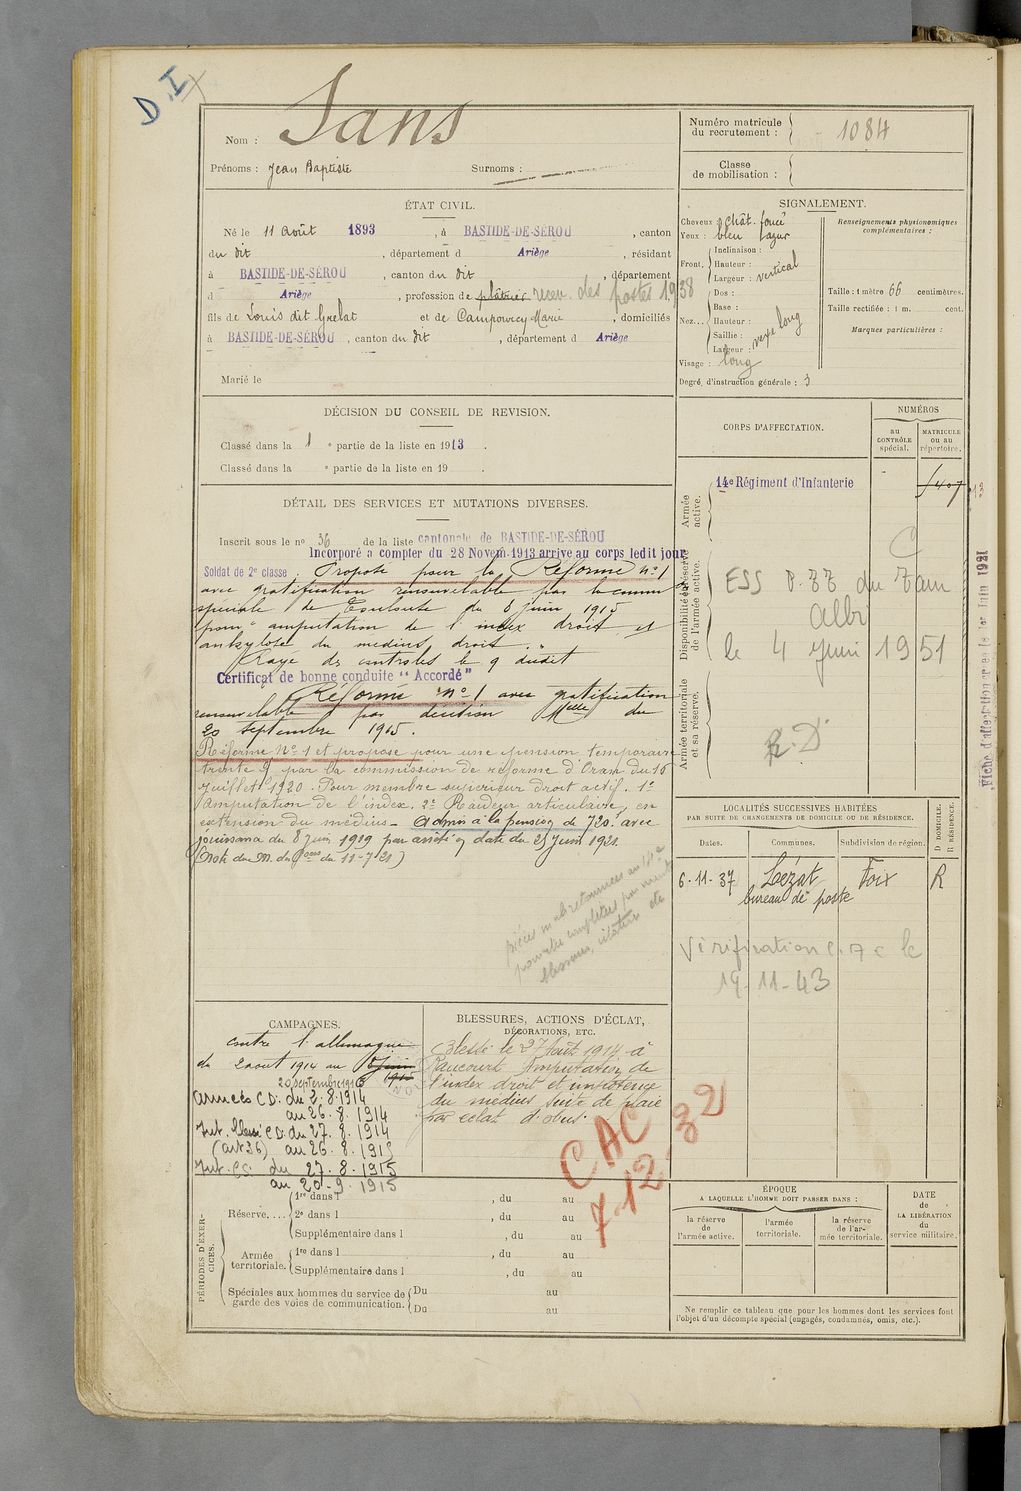 D.I
Nom : Sans
Prénoms : Jean Baptiste Surnoms :
Numéro matricule
du recrutement : 1084
Classe
de mobilisation :
ÉTAT CIVIL.
Né le 11 Août 1893, à BASTIDE-DE-SÉROU, canton
du dit, département d Ariège, résidant
à BASTIDE-DE-SÉROU, canton du dit, département
d Ariège, profession de plâtrier recev. des postes 1938
fils de Louis dit Grelat et de Marie, domiciliés
à BASTIDE-DE-SÉROU, canton du dit, département d Ariège
Marié le
SIGNALEMENT.
Cheveux : chât. foncé
Yeux : bleu
Front. Inclinaison :
Hauteur :
Largeur : vertical
Nez... Dos :
Base :
Hauteur :
Saillie :
Largeur : long
Visage : long
Renseignements physionomiques
complémentaires :
Taille : 1 mètre 66 centimètres.
Taille rectifiée : 1 m. cent.
Marques particulières :
Degré d'instruction générale : 3
DÉCISION DU CONSEIL DE REVISION.
Classé dans la 1 e partie de la liste en 1913.
Classé dans la e partie de la liste en 19 .
DÉTAIL DES SERVICES ET MUTATIONS DIVERSES.
Inscrit sous le n° 36 de la liste cantonale de BASTIDE-DE-SÉROU
Incorporé à compter du 28 Novem. 1913 arrive au corps ledit jour
Soldat de 2e classe. Proposé pour la Réforme n° 1
avec gratification renouvelable par la comm
spéciale de Toulouse du 8 juin 1915
pour "amputation de l'index droit et
ankylose du médius droit."
Rayé des contrôles le 9 dudit
Certificat de bonne conduite "Accordé"
Réformé n° 1 avec gratification
renouvelable par décision Mlle du
20 septembre 1915.
Réformé N° 1 et proposé pour une pension temporaire
trente % par la commission de réforme d'Oran du 15
juillet 1920. Pour membre supérieur droit actif. 1°
Amputation de l'index. 2° Raideur articulaire, en
extension du médius - Admis à la pension de 720f avec
jouissance du 8 juin 1919 par arrêté en date du 25 juin 1921.
(Not. du M. des Pons du 11-7-21)
CORPS D'AFFECTATION.
NUMÉROS
au
CONTRÔLE
spécial.
MATRICULE
ou au
répertoire.
Armée
active.
14e Régiment d'Infanterie
Disponibilité et réserve
de l'armée active.
ESS P. ZZ du Tarn
Albi
le 4 Juin 1951
Armée territoriale
et sa réserve.
R. D
Fiche d'affectation créée le 1er Juin 1921
LOCALITÉS SUCCESSIVES HABITÉES
PAR SUITE DE CHANGEMENTS DE DOMICILE OU DE RÉSIDENCE.
D DOMICILE.
R RÉSIDENCE.
Dates. Communes. Subdivision de région.
6-11-37 Lézat Foix R
bureau de poste
Vérification le
19-11-43
CAMPAGNES.
contre l'allemagne
du 2 août 1914 au
20 septembre 1915
Armées CD: du 2.8.1914
au 26.8.1914
Int. blessé CD. du 27.8.1914
(art 36) au 26.8.1915
Int. CS. du 27.8.1915
au 20-9.1915
BLESSURES, ACTIONS D'ÉCLAT,
DÉCORATIONS, ETC.
Blessé le 27 Août 1914 à
Raucourt Amputation de
l'index droit et impotence
du médius suite de plaie
par éclat d'obus.
CAC
7.12 32
PÉRIODES D'EXERCICES.
Réserve.... 1re dans l , du au
2e dans l , du au
Supplémentaire dans l , du au
Armée
territoriale. 1re dans l , du au
Supplémentaire dans l , du au
Spéciales aux hommes du service de
garde des voies de communication. Du au
Du au
ÉPOQUE
A LAQUELLE L'HOMME DOIT PASSER DANS :
la réserve
de
l'armée active.
l'armée
territoriale.
la réserve
de l'ar-
mée territoriale.
DATE
de
LA LIBÉRATION
du
service militaire.
Ne remplir ce tableau que pour les hommes dont les services font
l'objet d'un décompte spécial (engagés, condamnés, omis, etc.).